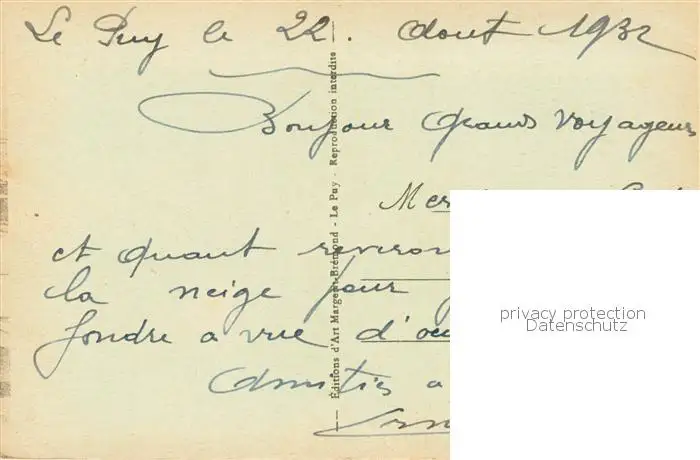 Le Puy le 22. Aout 1932
Bonjour Grands Voyageurs
et quant
la neige pour
fondre a vue d'oeu
Amitiés a
Éditions d'Art Margerit-Brémond - Le Puy - Reproduction interdite
privacy protection
Datenschutz